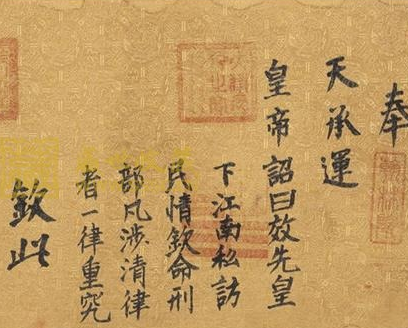 奉
天承運
皇帝詔曰效先皇
下江南私訪
民情欽命刑
部凡涉清律
者一律重究
欽此